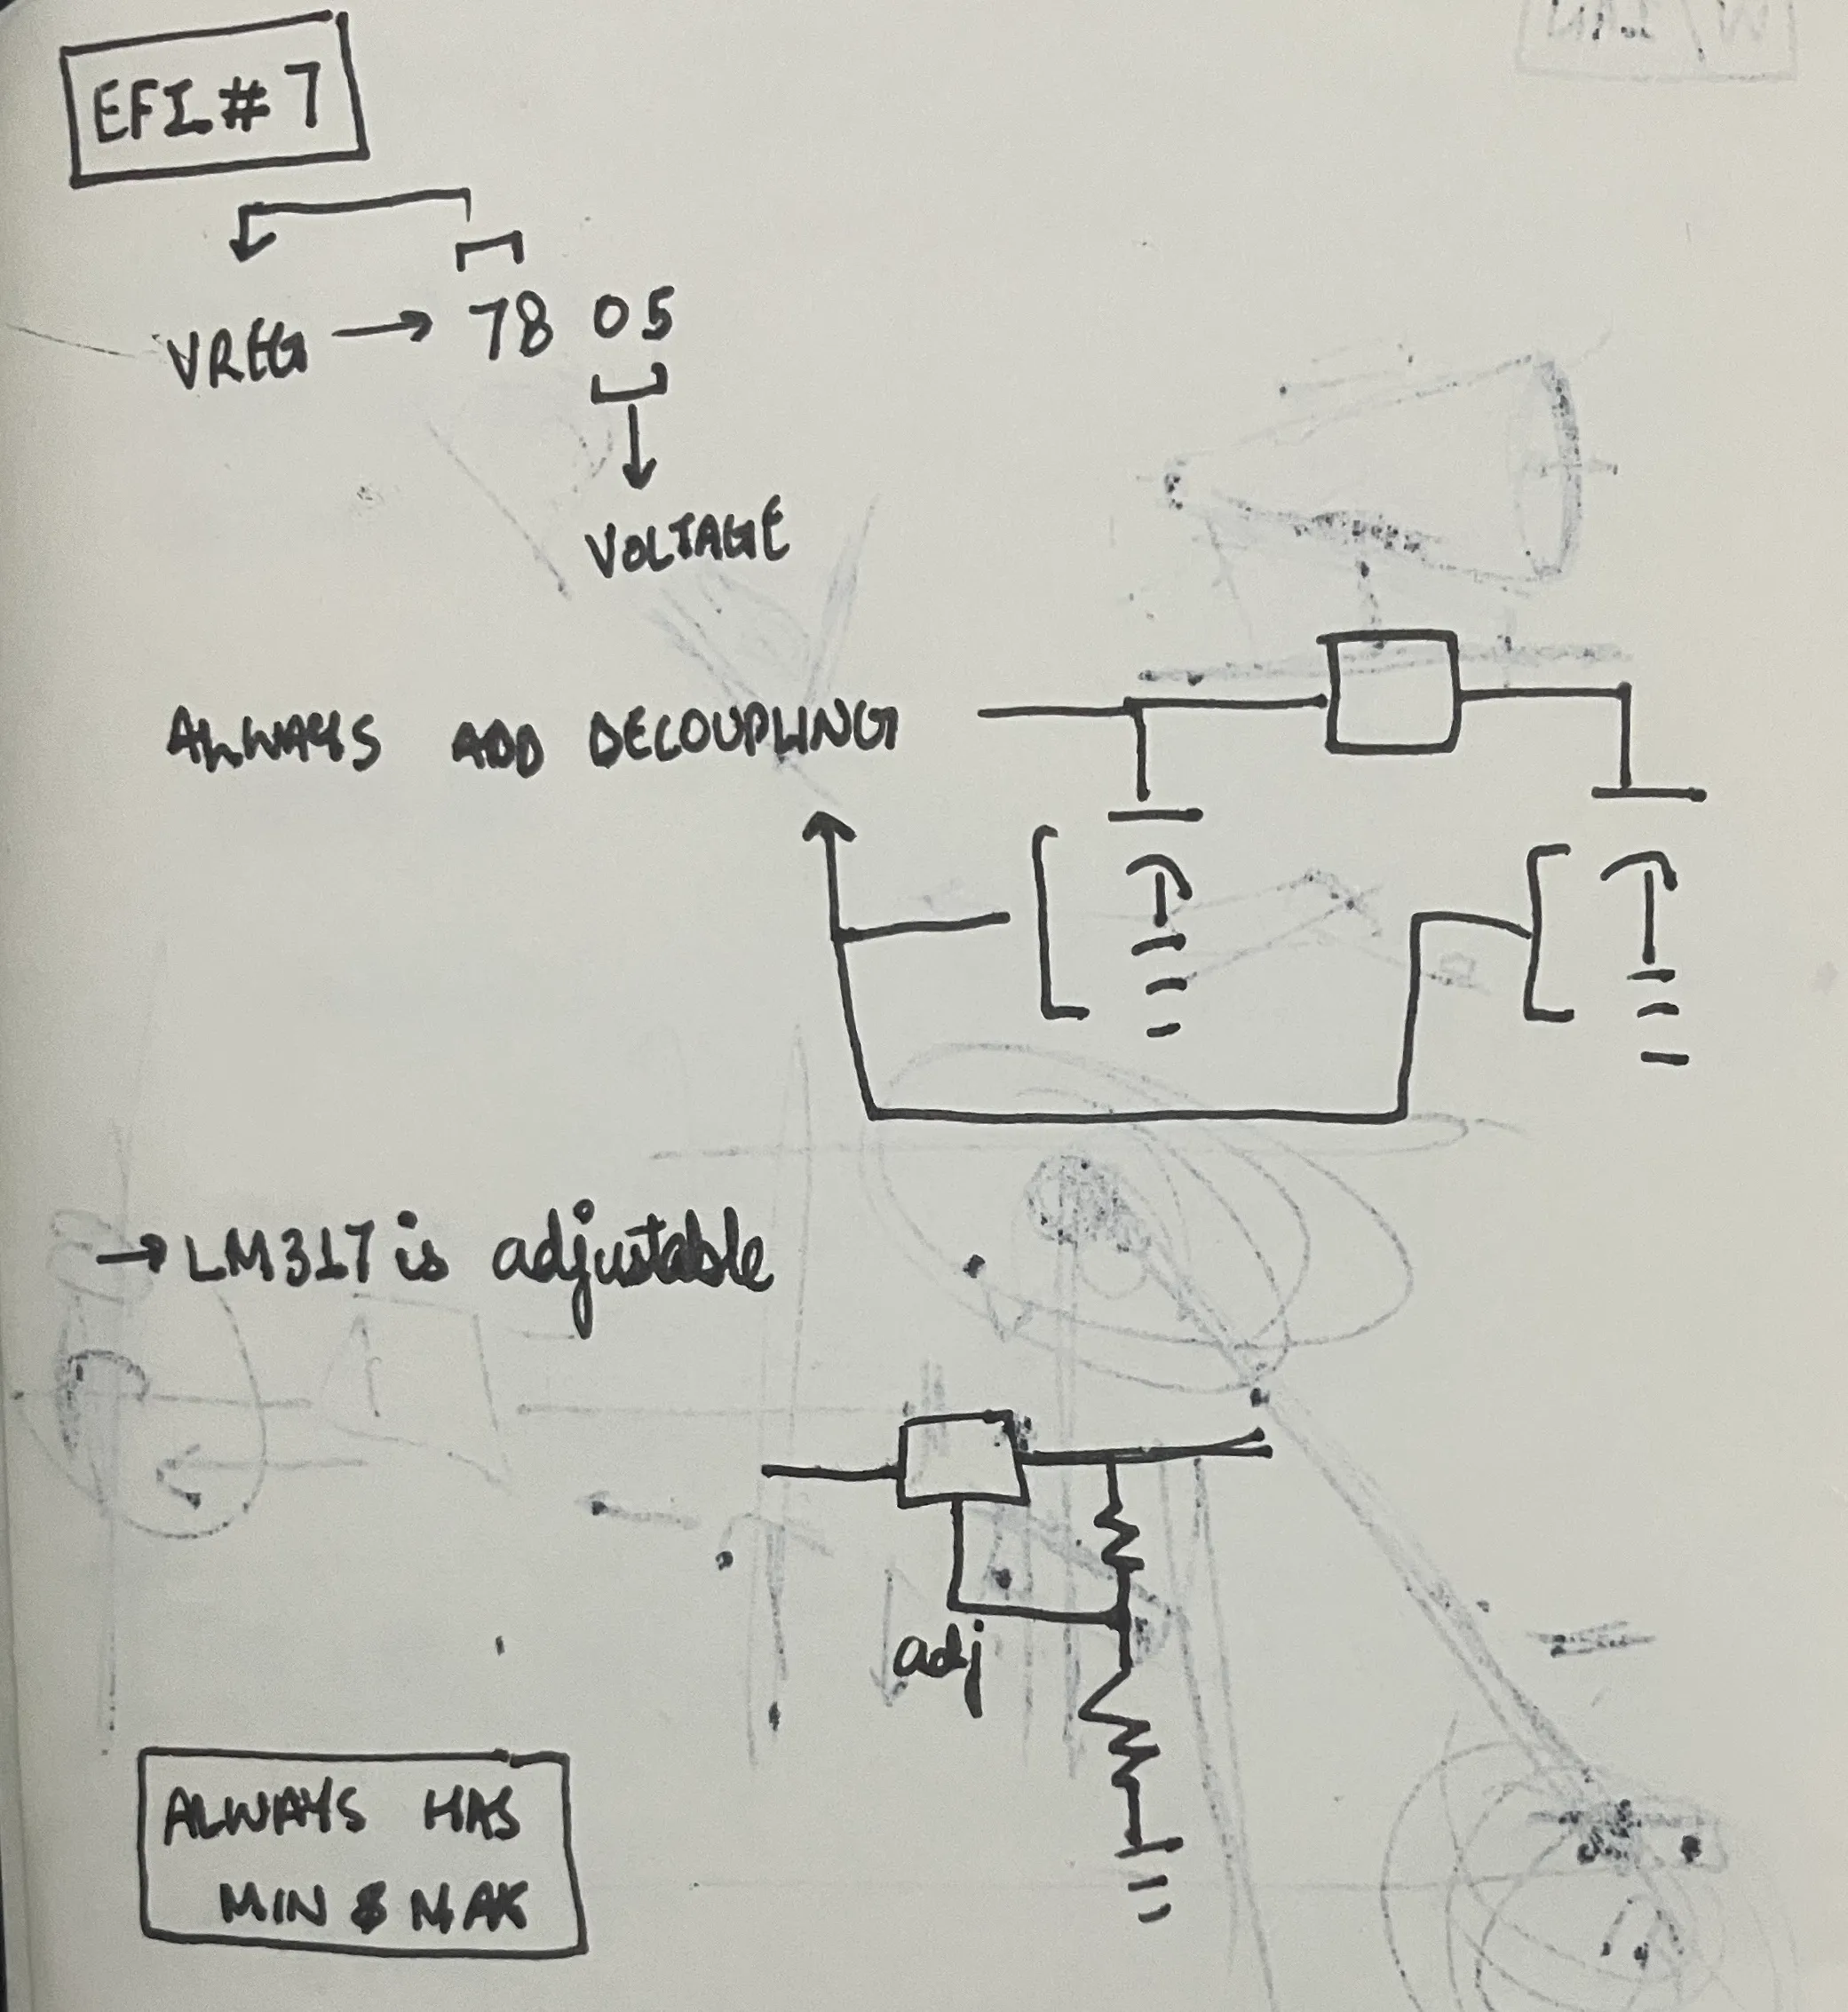 EFI #7
VREG → 78 05
VOLTAGE
ALWAYS ADD DECOUPLING
→ LM317 is adjustable
adj
ALWAYS HAS
MIN & MAX